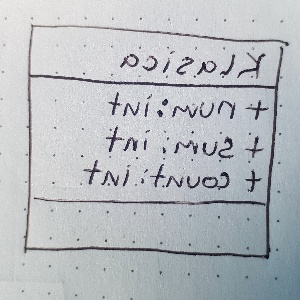 Klasica
+ num:int
+ sum:int
+ count:int